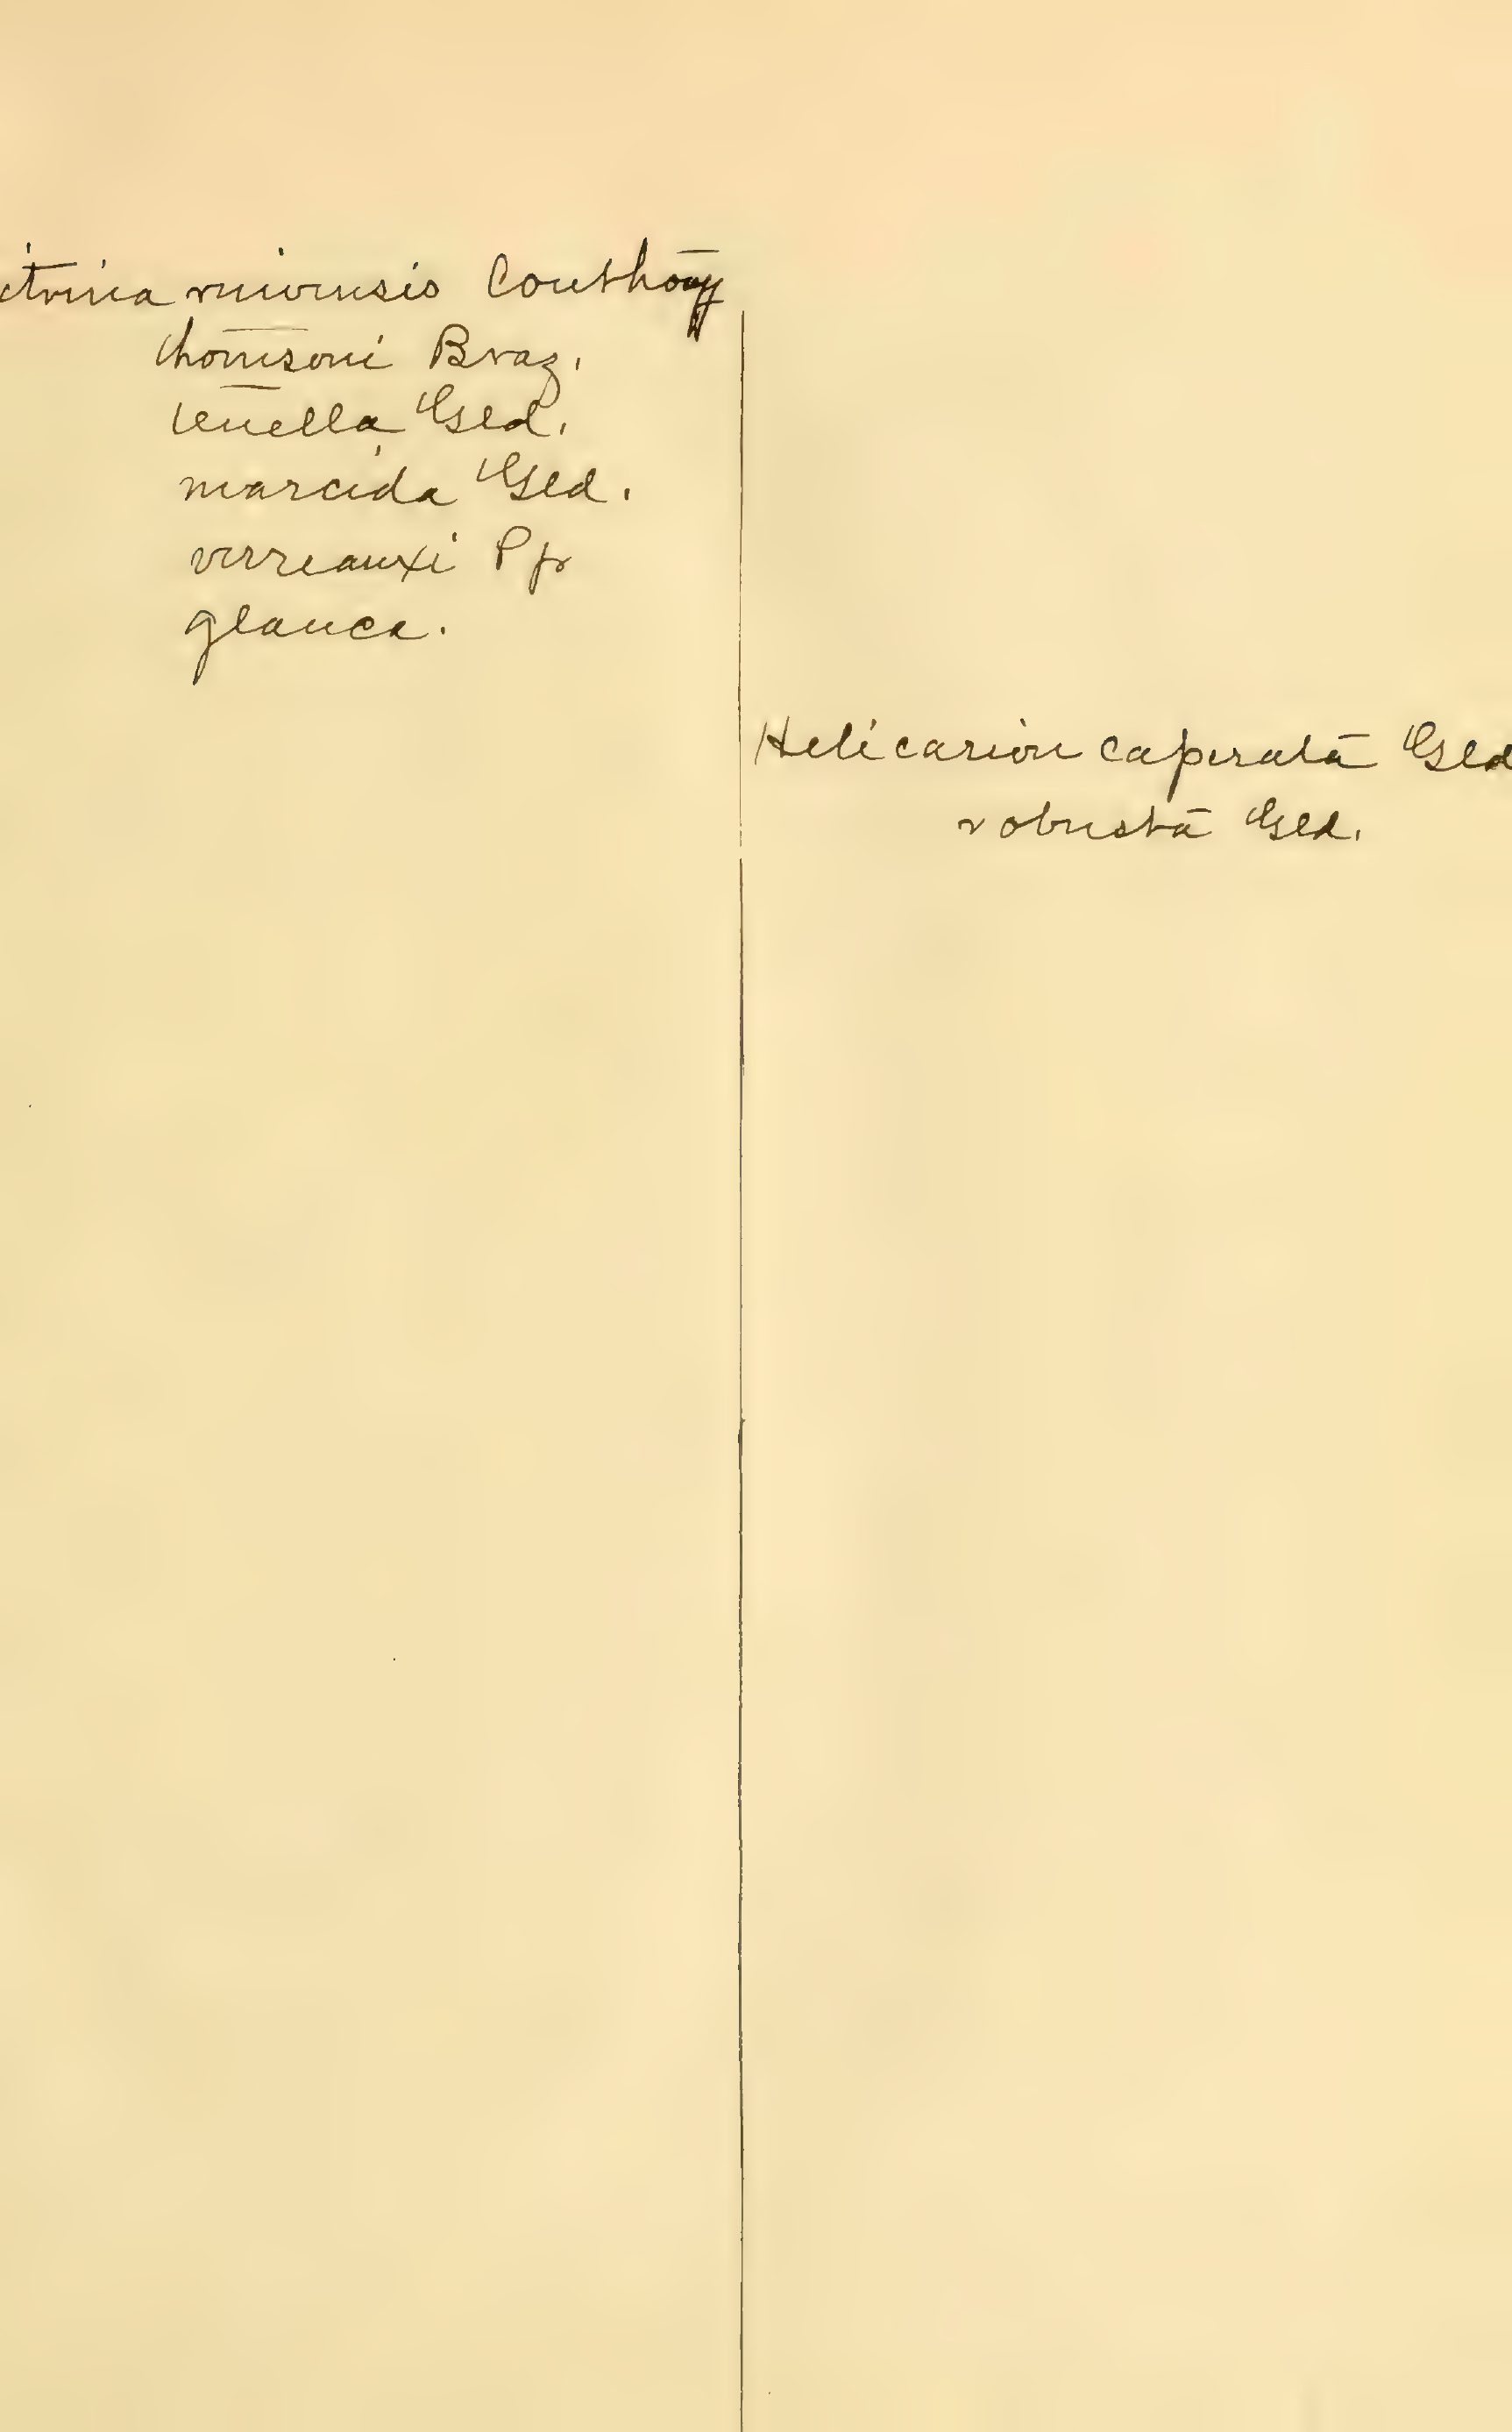 itrina ruivensis Couthouy
thomsoni Braz.
tenella Gld.
marcida Gld.
verreauxi Pfr
glauca.
Helicarion caperata Gld
robusta Gld.